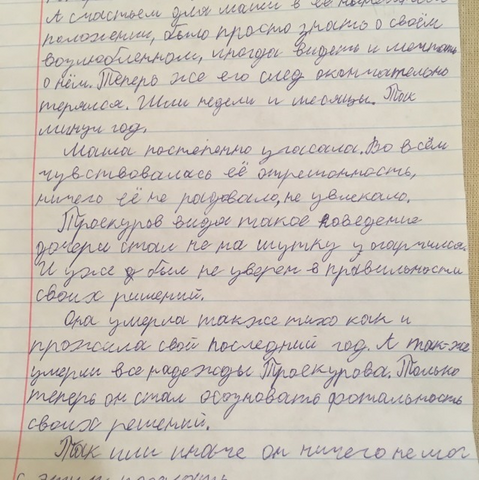 А счастьем для маши в её
положении, было просто знать о своём
возлюбленном, иногда видеть и мечтать
о нём. Теперь же его след окончательно
терялся. Шли недели и месяцы. Так
минул год.
Маша постепенно угасала. Во всём
чувствовалась её отрешонность,
ничего её не радовало, не увлекало.
Троекуров видя такое поведение
дочери стал не на шутку
И уже был не уверен в правильности
своих решений.
Она умерла также тихо как и
прожила свой последний год. А так-же
умерли все надежды Троекурова. Только
теперь он стал осозновать фотальность
своих решений.
Так или иначе он ничего не мог
с этим